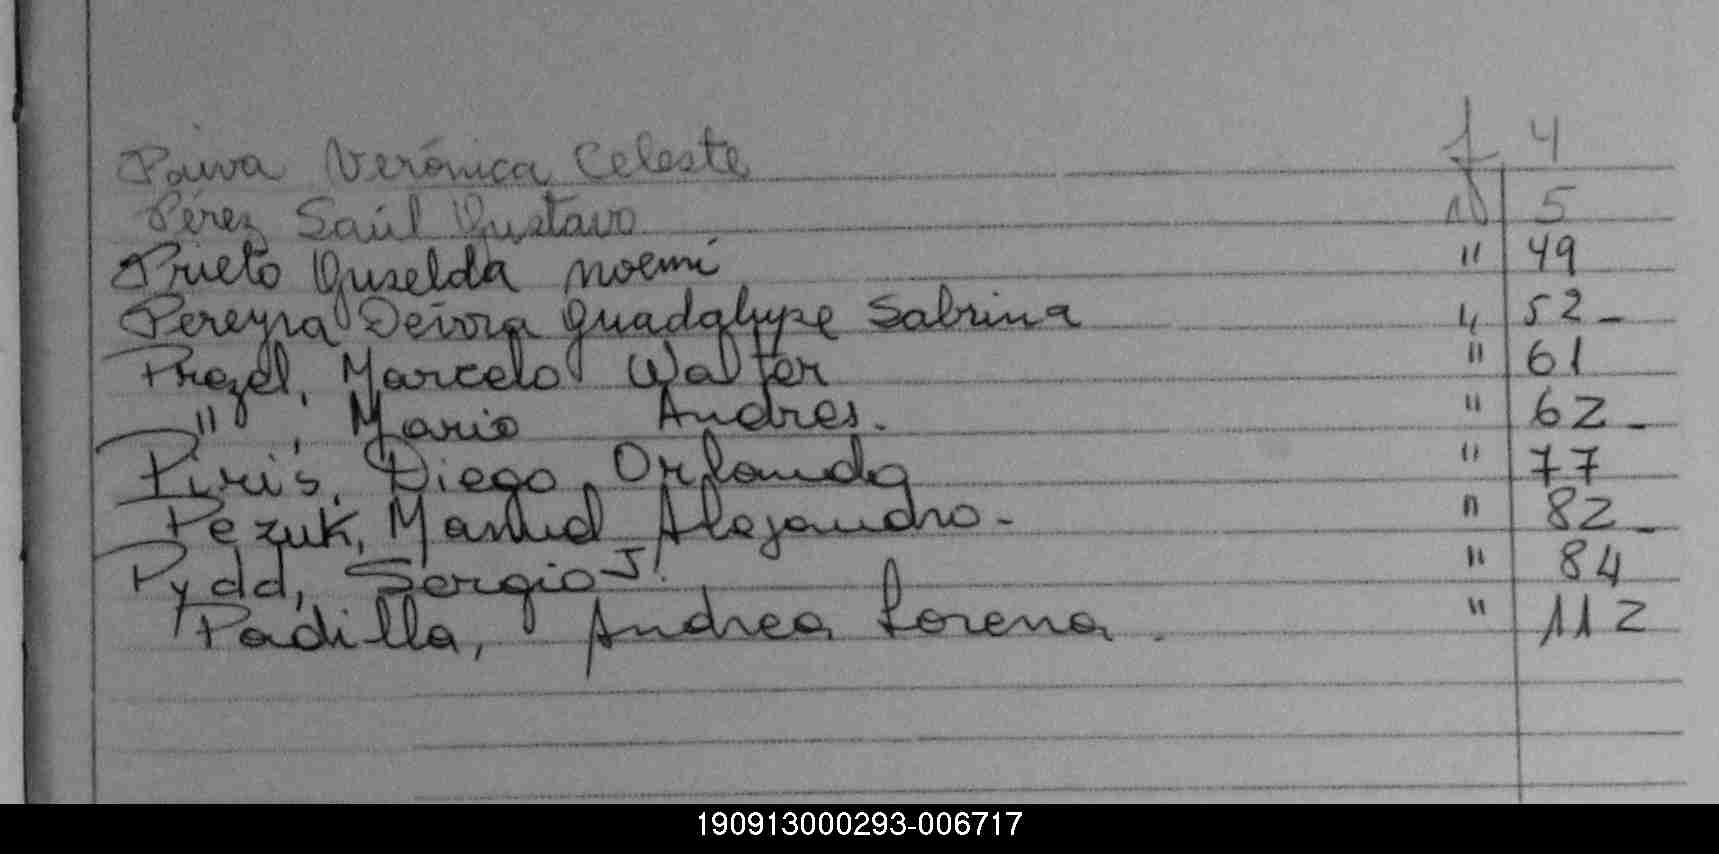 Paiva Verónica Celeste f 4
Pérez Saúl Gustavo " 5
Prieto Guselda noemí " 49
Pereyra Deivra guadalupe Sabrina " 52_
Prezel, Marcelo Walter " 61
" , Mario Andres. " 62_
Piris, Diego Orlando " 77
Pezuk, Manuel Alejandro- " 82_
Pydd, Sergio J. " 84
Padilla, Andrea Lorena. " 112
190913000293-006717